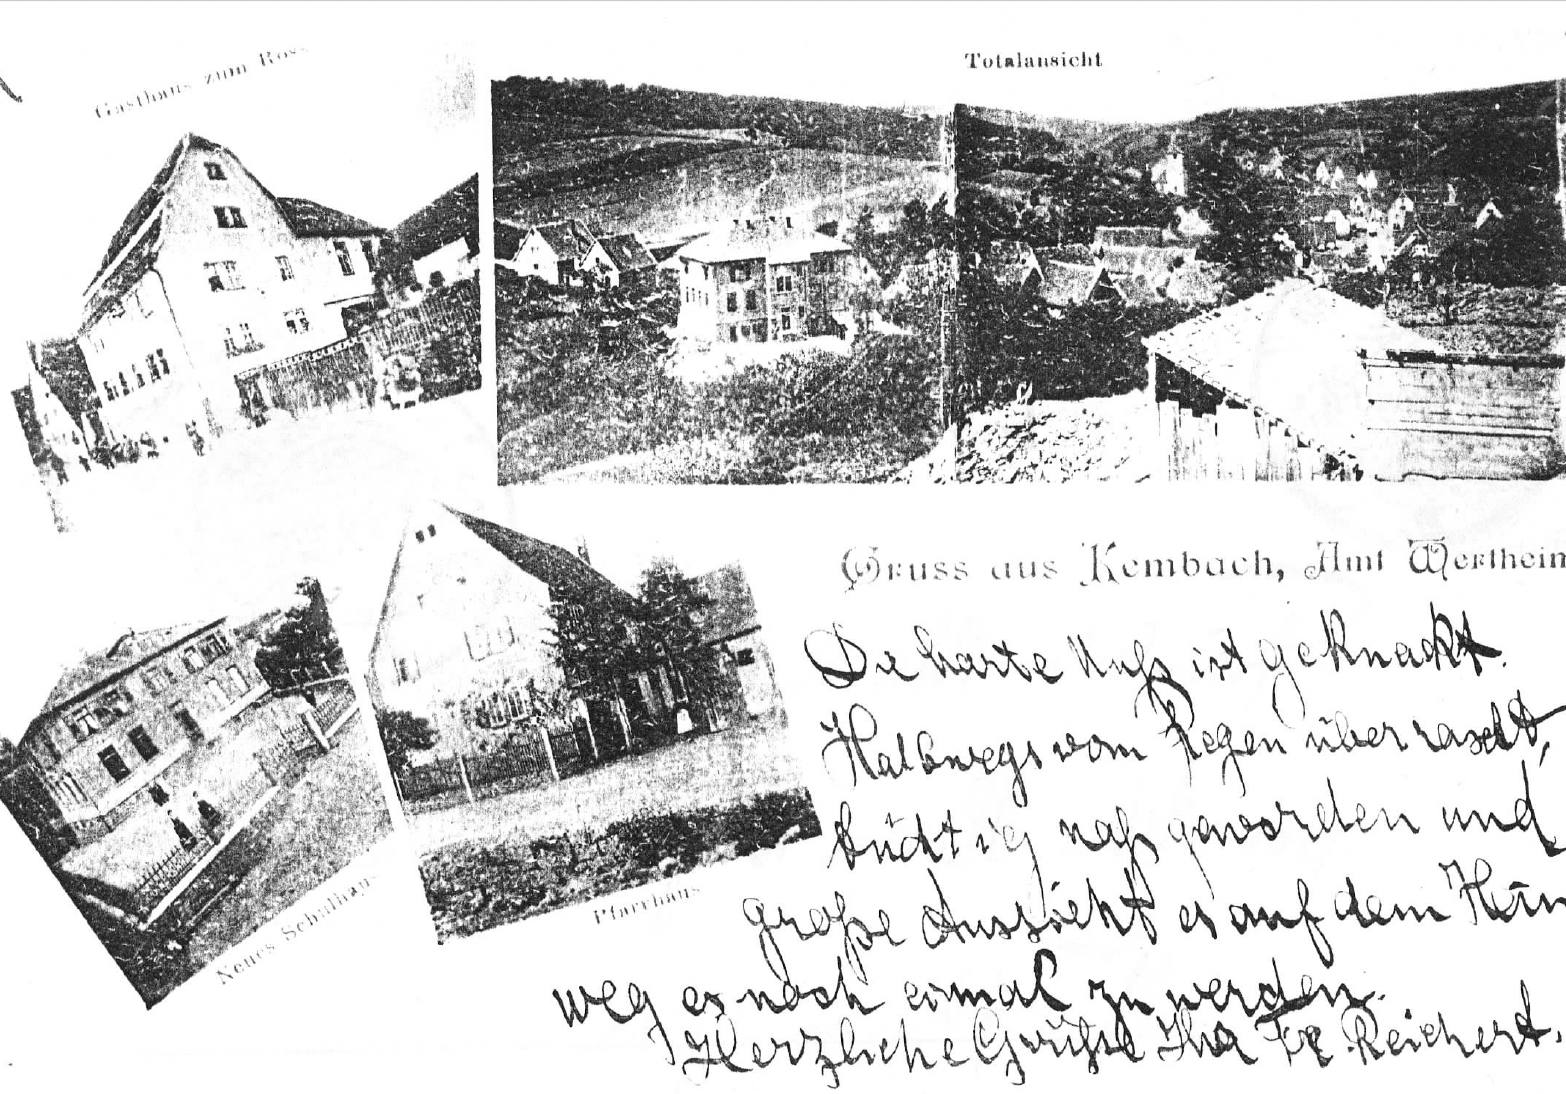 Gasthaus zum Ross
Totalansicht
Neues Schulhaus
Pfarrhaus
Gruss aus Kembach, Amt Wertheim
Die harte Nuß ist geknackt.
Halbwegs vom Regen überrascht,
tüchtig naß geworden und
große Aussicht es auf dem Heim
weg es noch einmal zu werden.
Herzliche Grüße Ihr Fr. Reichert.